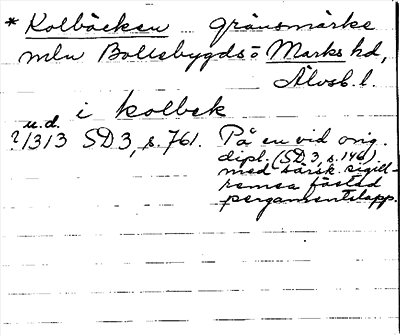 * Kolbäcken gränsmärke
mln Bollebygds o Marks hd,
Älvsb. l.
i kolbek
u.d.
?1313 SD 3, s. 761. På en vid orig.
dipl. (SD 3, s. 146)
med särsk. sigill-
remsa fästad
pergamentslapp.